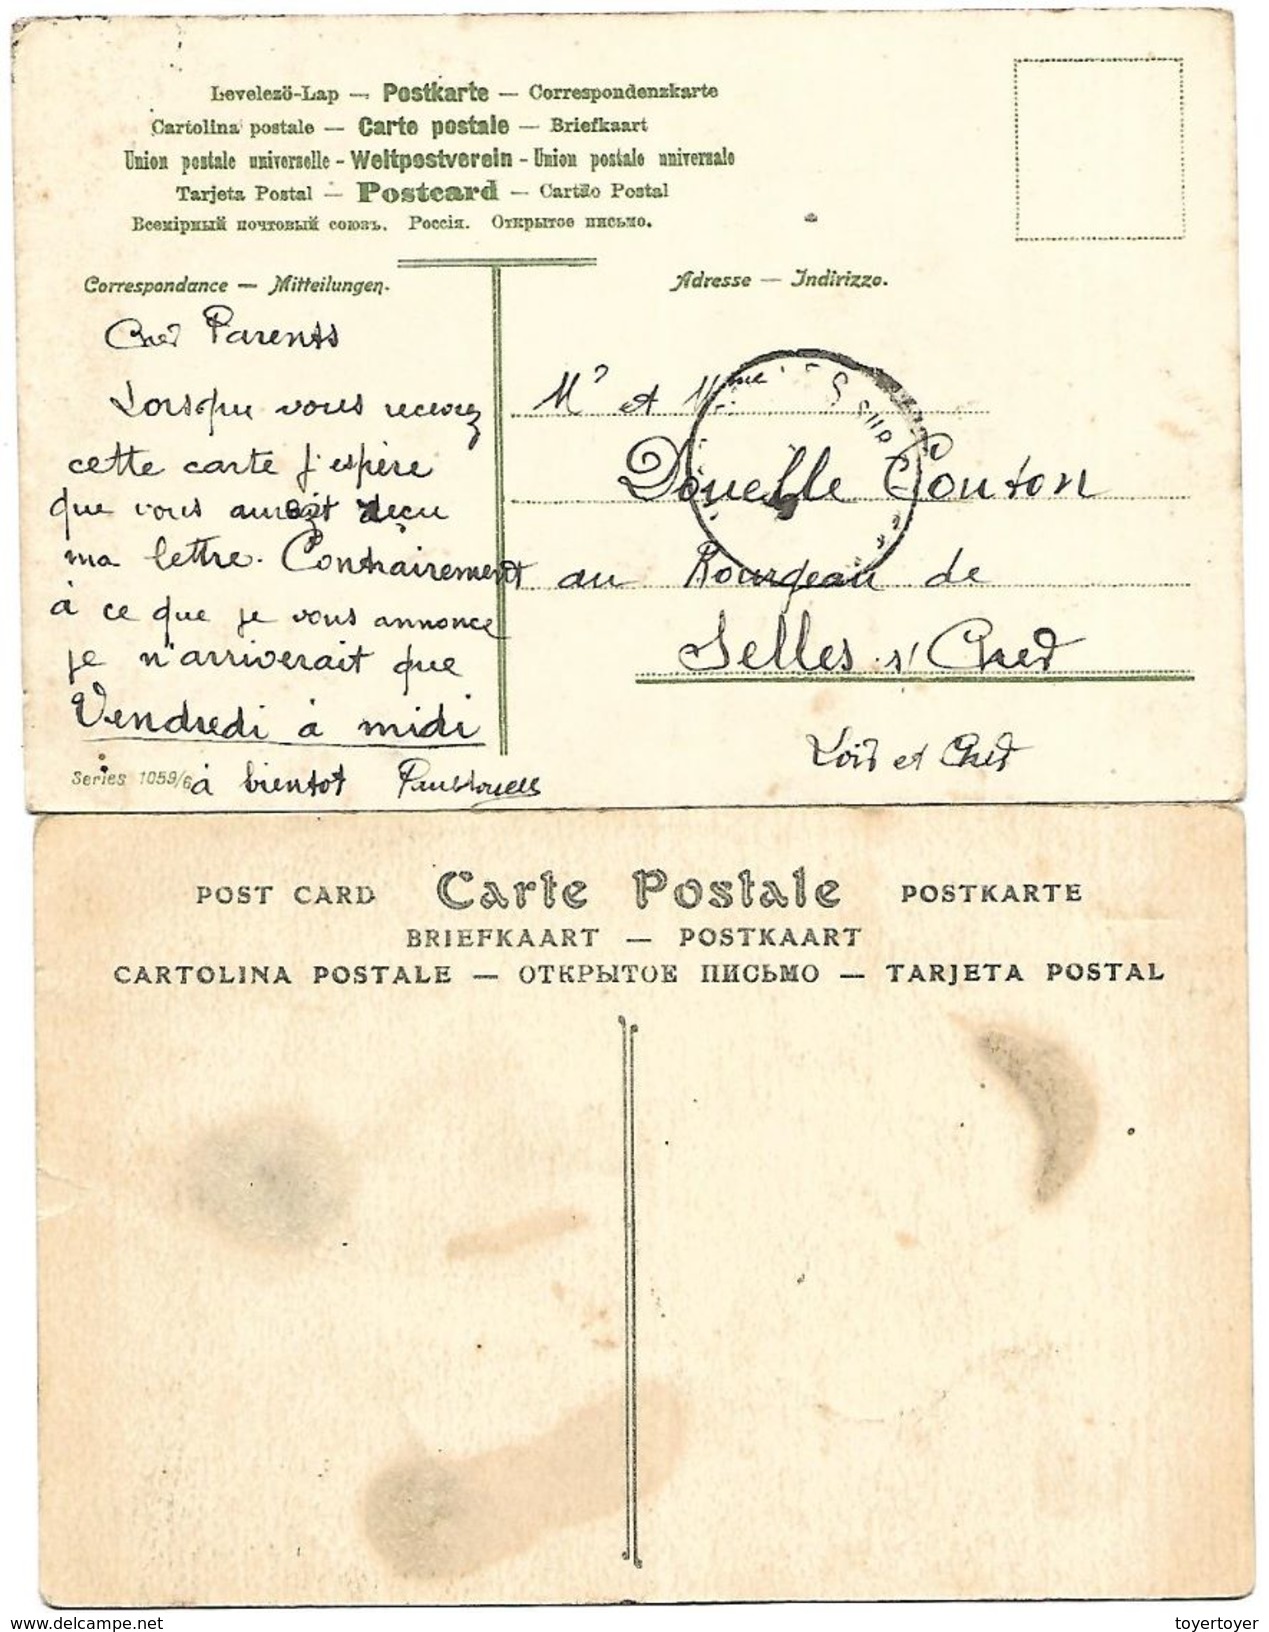 Levelező-Lap — Postkarte — Correspondenzkarte
Cartolina postale — Carte postale — Briefkaart
Union postale universelle - Weltpostverein - Union postale universale
Tarjeta Postal — Postcard — Cartão Postal
Всемірный почтовый союзъ. Россія. Открытое письмо.
Correspondance — Mitteilungen.
Adresse — Indirizzo.
Cher Parents
Lorsqu vous recevrez
cette carte j'espère
que vous aurait reçu
ma lettre. Contrairement
à ce que je vous annonce
je n'arriverait que
Vendredi à midi
à bientot
Series 1059/6
Mr et Mme
Douelle Couton
au Bourgeau de
Selles s/ Cher
Loir et Cher
POST CARD Carte Postale POSTKARTE
BRIEFKAART — POSTKAART
CARTOLINA POSTALE — ОТКРЫТОЕ ПИСЬМО — TARJETA POSTAL
www.delcampe.net
toyertoyer